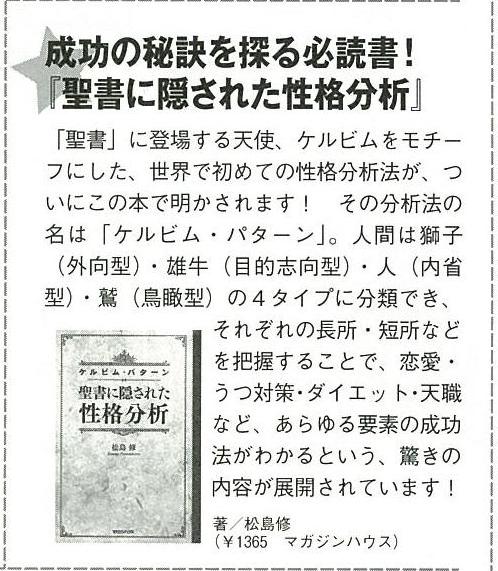 成功の秘訣を探る必読書！
『聖書に隠された性格分析』
「聖書」に登場する天使、ケルビムをモチー
フにした、世界で初めての性格分析法が、つ
いにこの本で明かされます！　その分析法の
名は「ケルビム・パターン」。人間は獅子
（外向型）・雄牛（目的志向型）・人（内省
型）・鷲（鳥瞰型）の４タイプに分類でき、
それぞれの長所・短所など
を把握することで、恋愛・
うつ対策・ダイエット・天職
など、あらゆる要素の成功
法がわかるという、驚きの
内容が展開されています！
ケルビム・パターン
聖書に隠された
性格分析
松島 修
マガジンハウス
著／松島修
（￥1365　マガジンハウス）